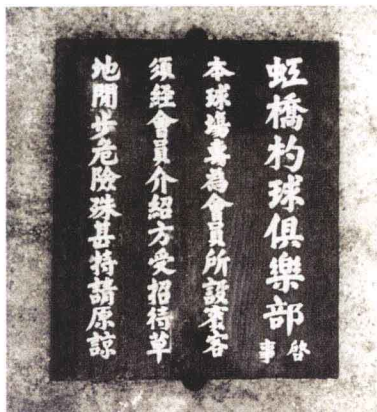 虹橋杓球俱樂部啓事
本球場專為會員所設賓客
須經會員介紹方受招待草
地閒步危險殊甚特請原諒